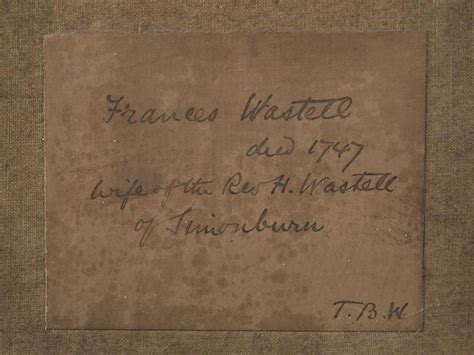 Frances Wastell
died 1747
wife of the Rev H. Wastell
of Simonburn
T. B. W